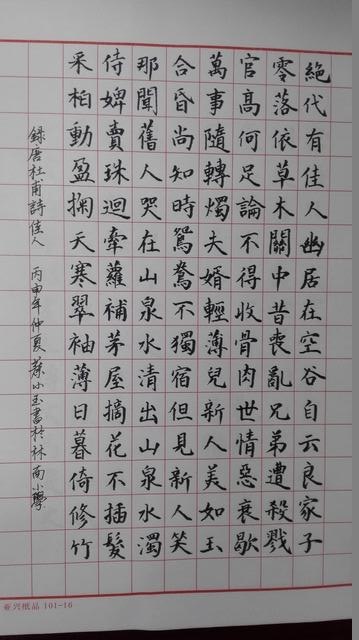 絕代有佳人幽居在空谷自云良家子
零落依草木關中昔喪亂兄弟遭殺戮
官高何足論不得收骨肉世情惡衰歇
萬事隨轉燭夫婿輕薄兒新人美如玉
合昏尚知時鴛鴦不獨宿但見新人笑
那聞舊人哭在山泉水清出山泉水濁
侍婢賣珠迴牽蘿補茅屋摘花不插髮
采柏動盈掬天寒翠袖薄日暮倚修竹
錄唐杜甫詩佳人 丙申年仲夏小玉書於林南小學
亚兴纸品 101-16